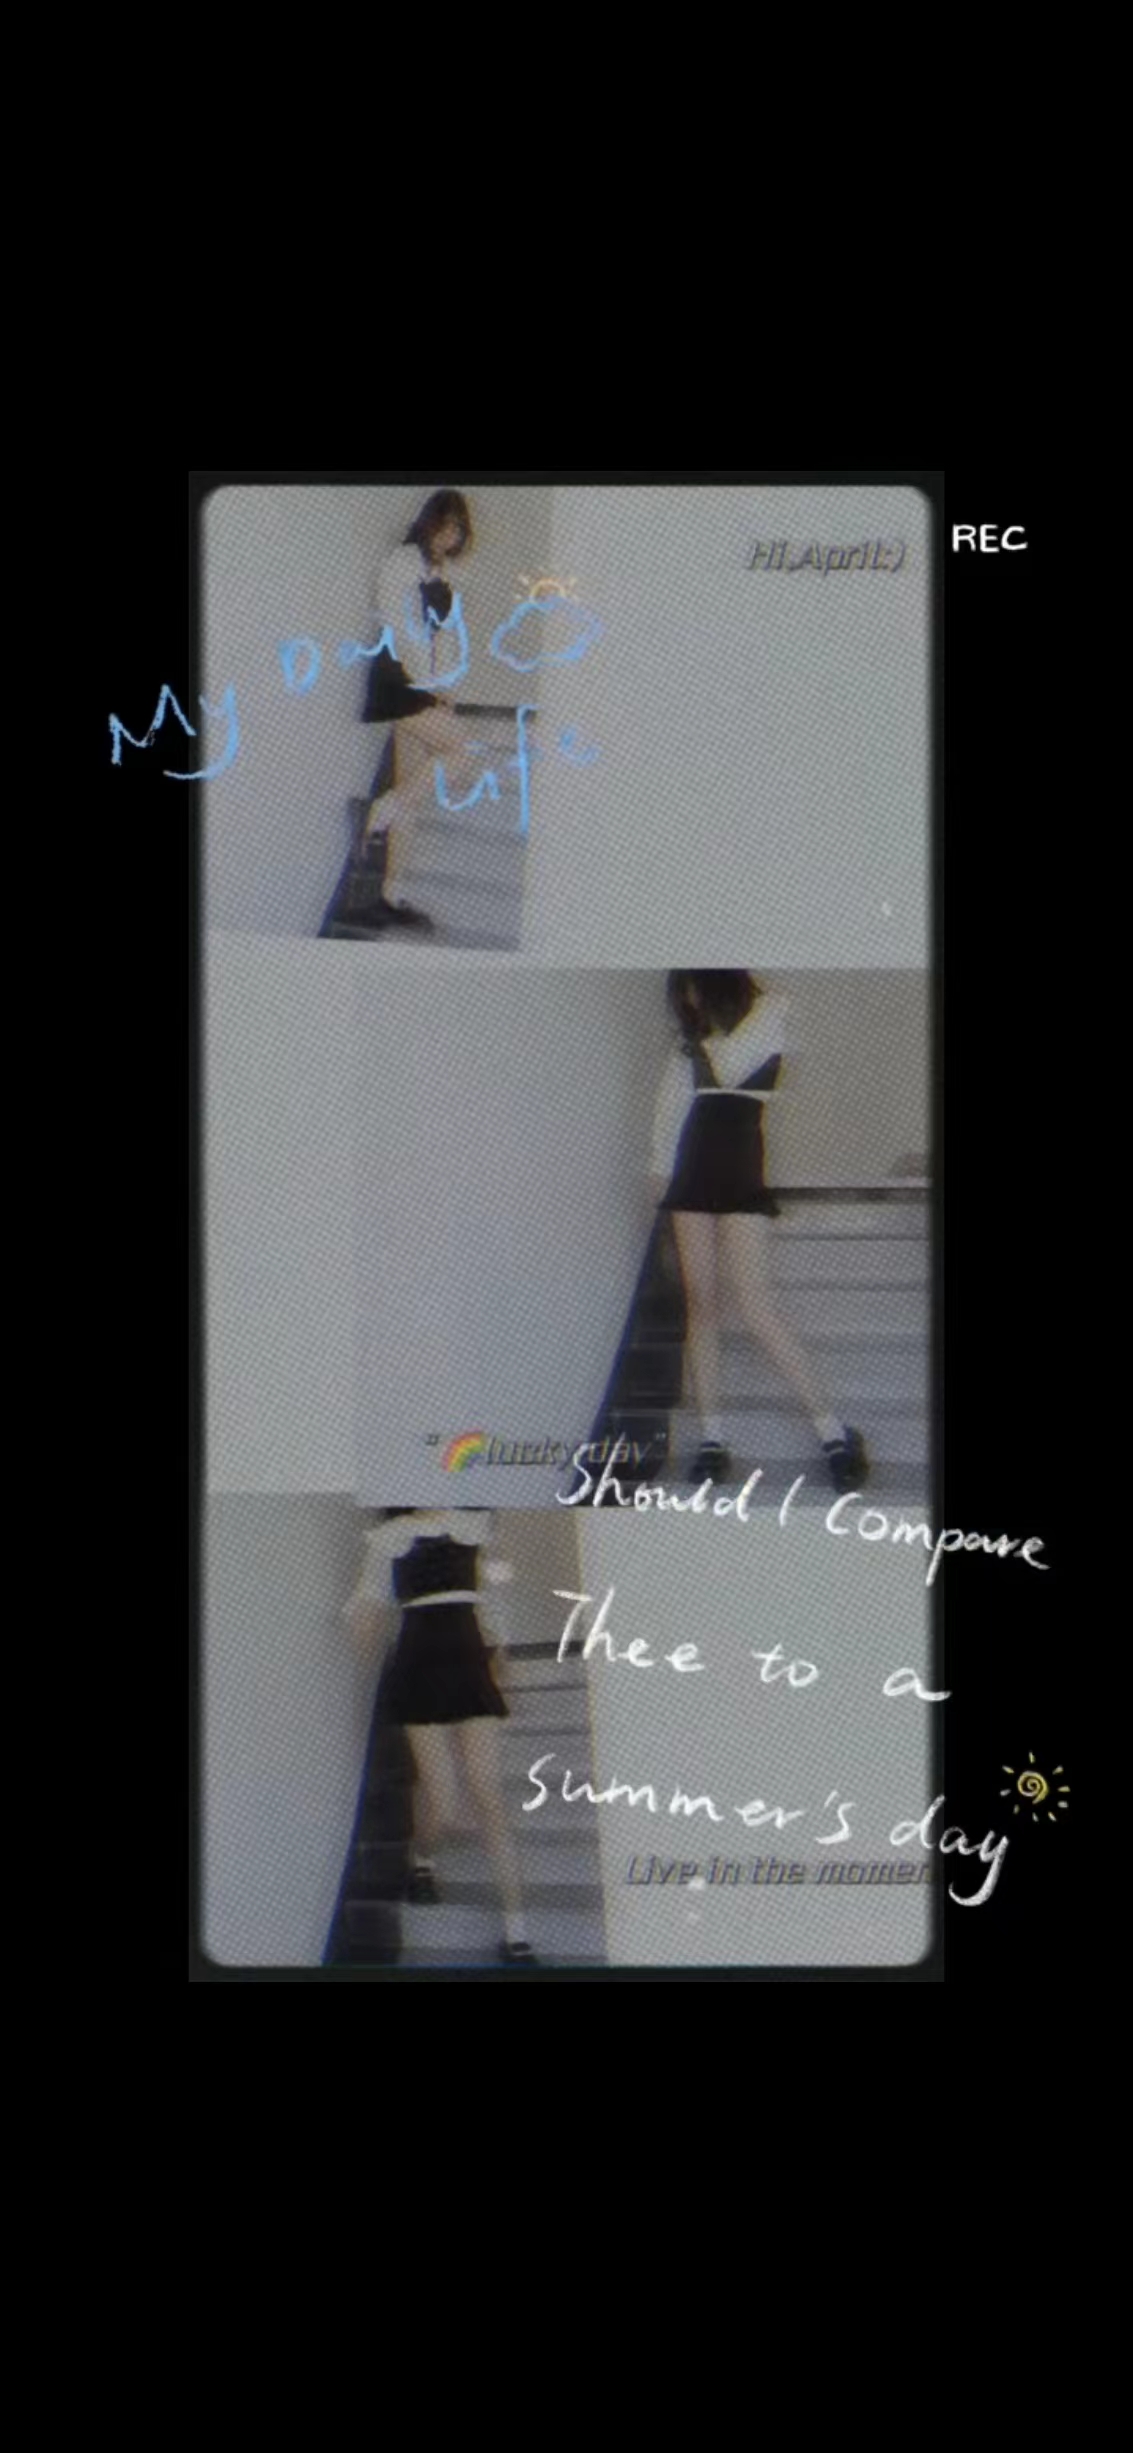 REC
Hi,April:)
My Daily
Life
"🌈lucky day"
Should I Compare
Thee to a
summer's day
Live in the momen